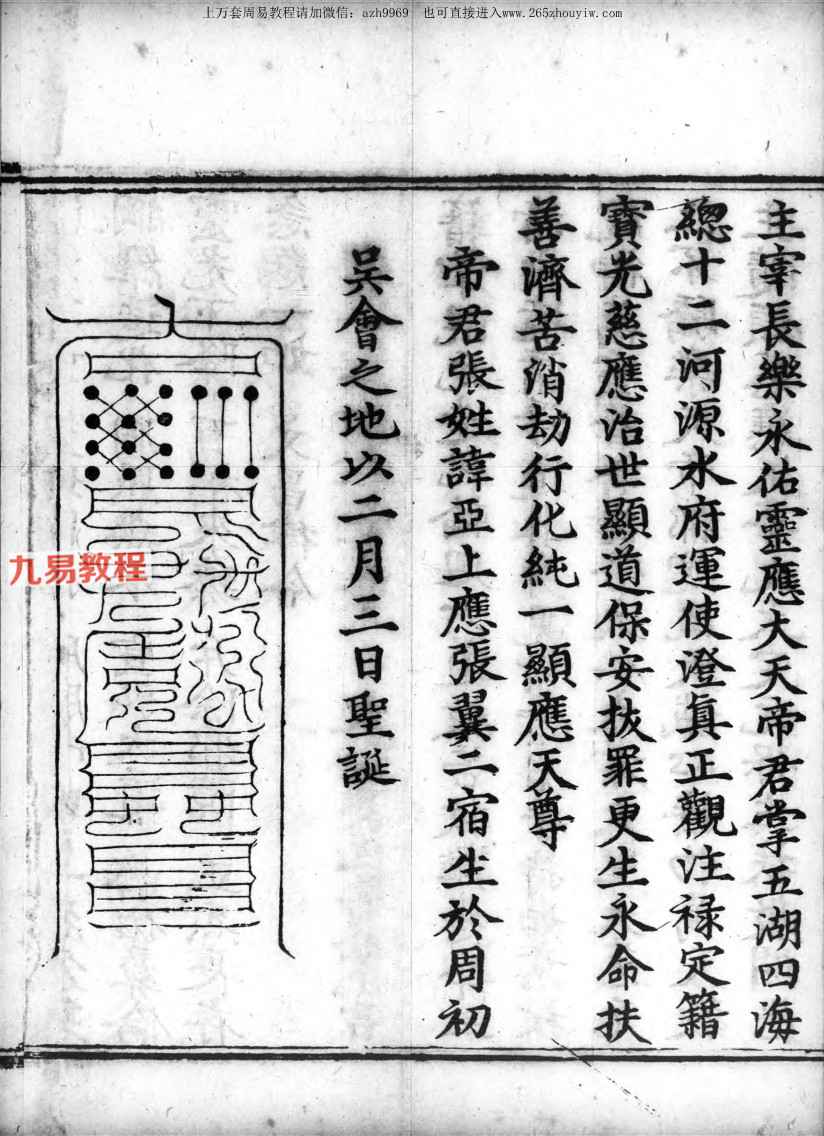 上万套周易教程请加微信：azh9969 也可直接进入www.265zhouyiw.com
主宰長樂永佑靈應大天帝君掌五湖四海
總十二河源水府運使澄真正觀注禄定籍
寶光慈應治世顯道保安拔罪更生永命扶
善濟苦消劫行化純一顯應天尊
帝君張姓諱亞上應張翼二宿生於周初
吴會之地以二月三日聖誕
九易教程